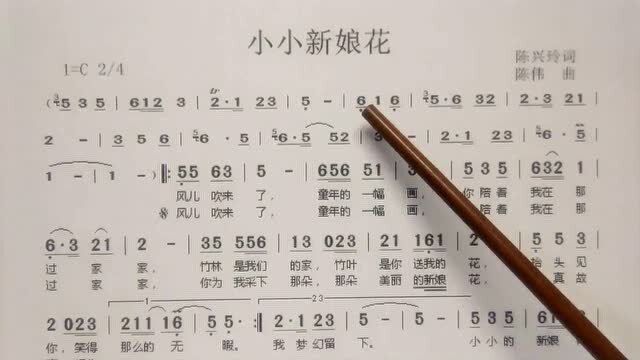 小小新娘花
1=C 2/4
陈兴玲词
陈伟 曲
(535 | 612 3 | 2·1 23 | 5 - | 616 | 5·6 32 | 2·3 21 |
2 - | 3 5 | 6 5 6 | 6·5 52 | 3 - | 2·1 23 | 5 6·5 |
1 - | 1 - ) |: 55 63 | 5 - | 656 51 | 5 | 535 | 632
风儿 吹来 了, 童年的 一幅 画, 你陪着 我在 那
※风儿 吹来 了, 童年的 一幅 画, 陪着 我在 那
6·3 21 | 2 - | 35 556 | 13 023 | 21 161 | 2 | 5 53
过 家 家, 竹林 是我们 的家, 竹叶 是你 送我的 花, 抬头 见
过 家 家, 你为 我采下 那朵, 那朵 美丽 的新娘 花, 真故
2 023 | 211 16 | 5 5· :| 2·1 23 | 5 - | 5
你, 笑得 那么的 无 暇。 我 梦幻留 下。 小小的 新娘